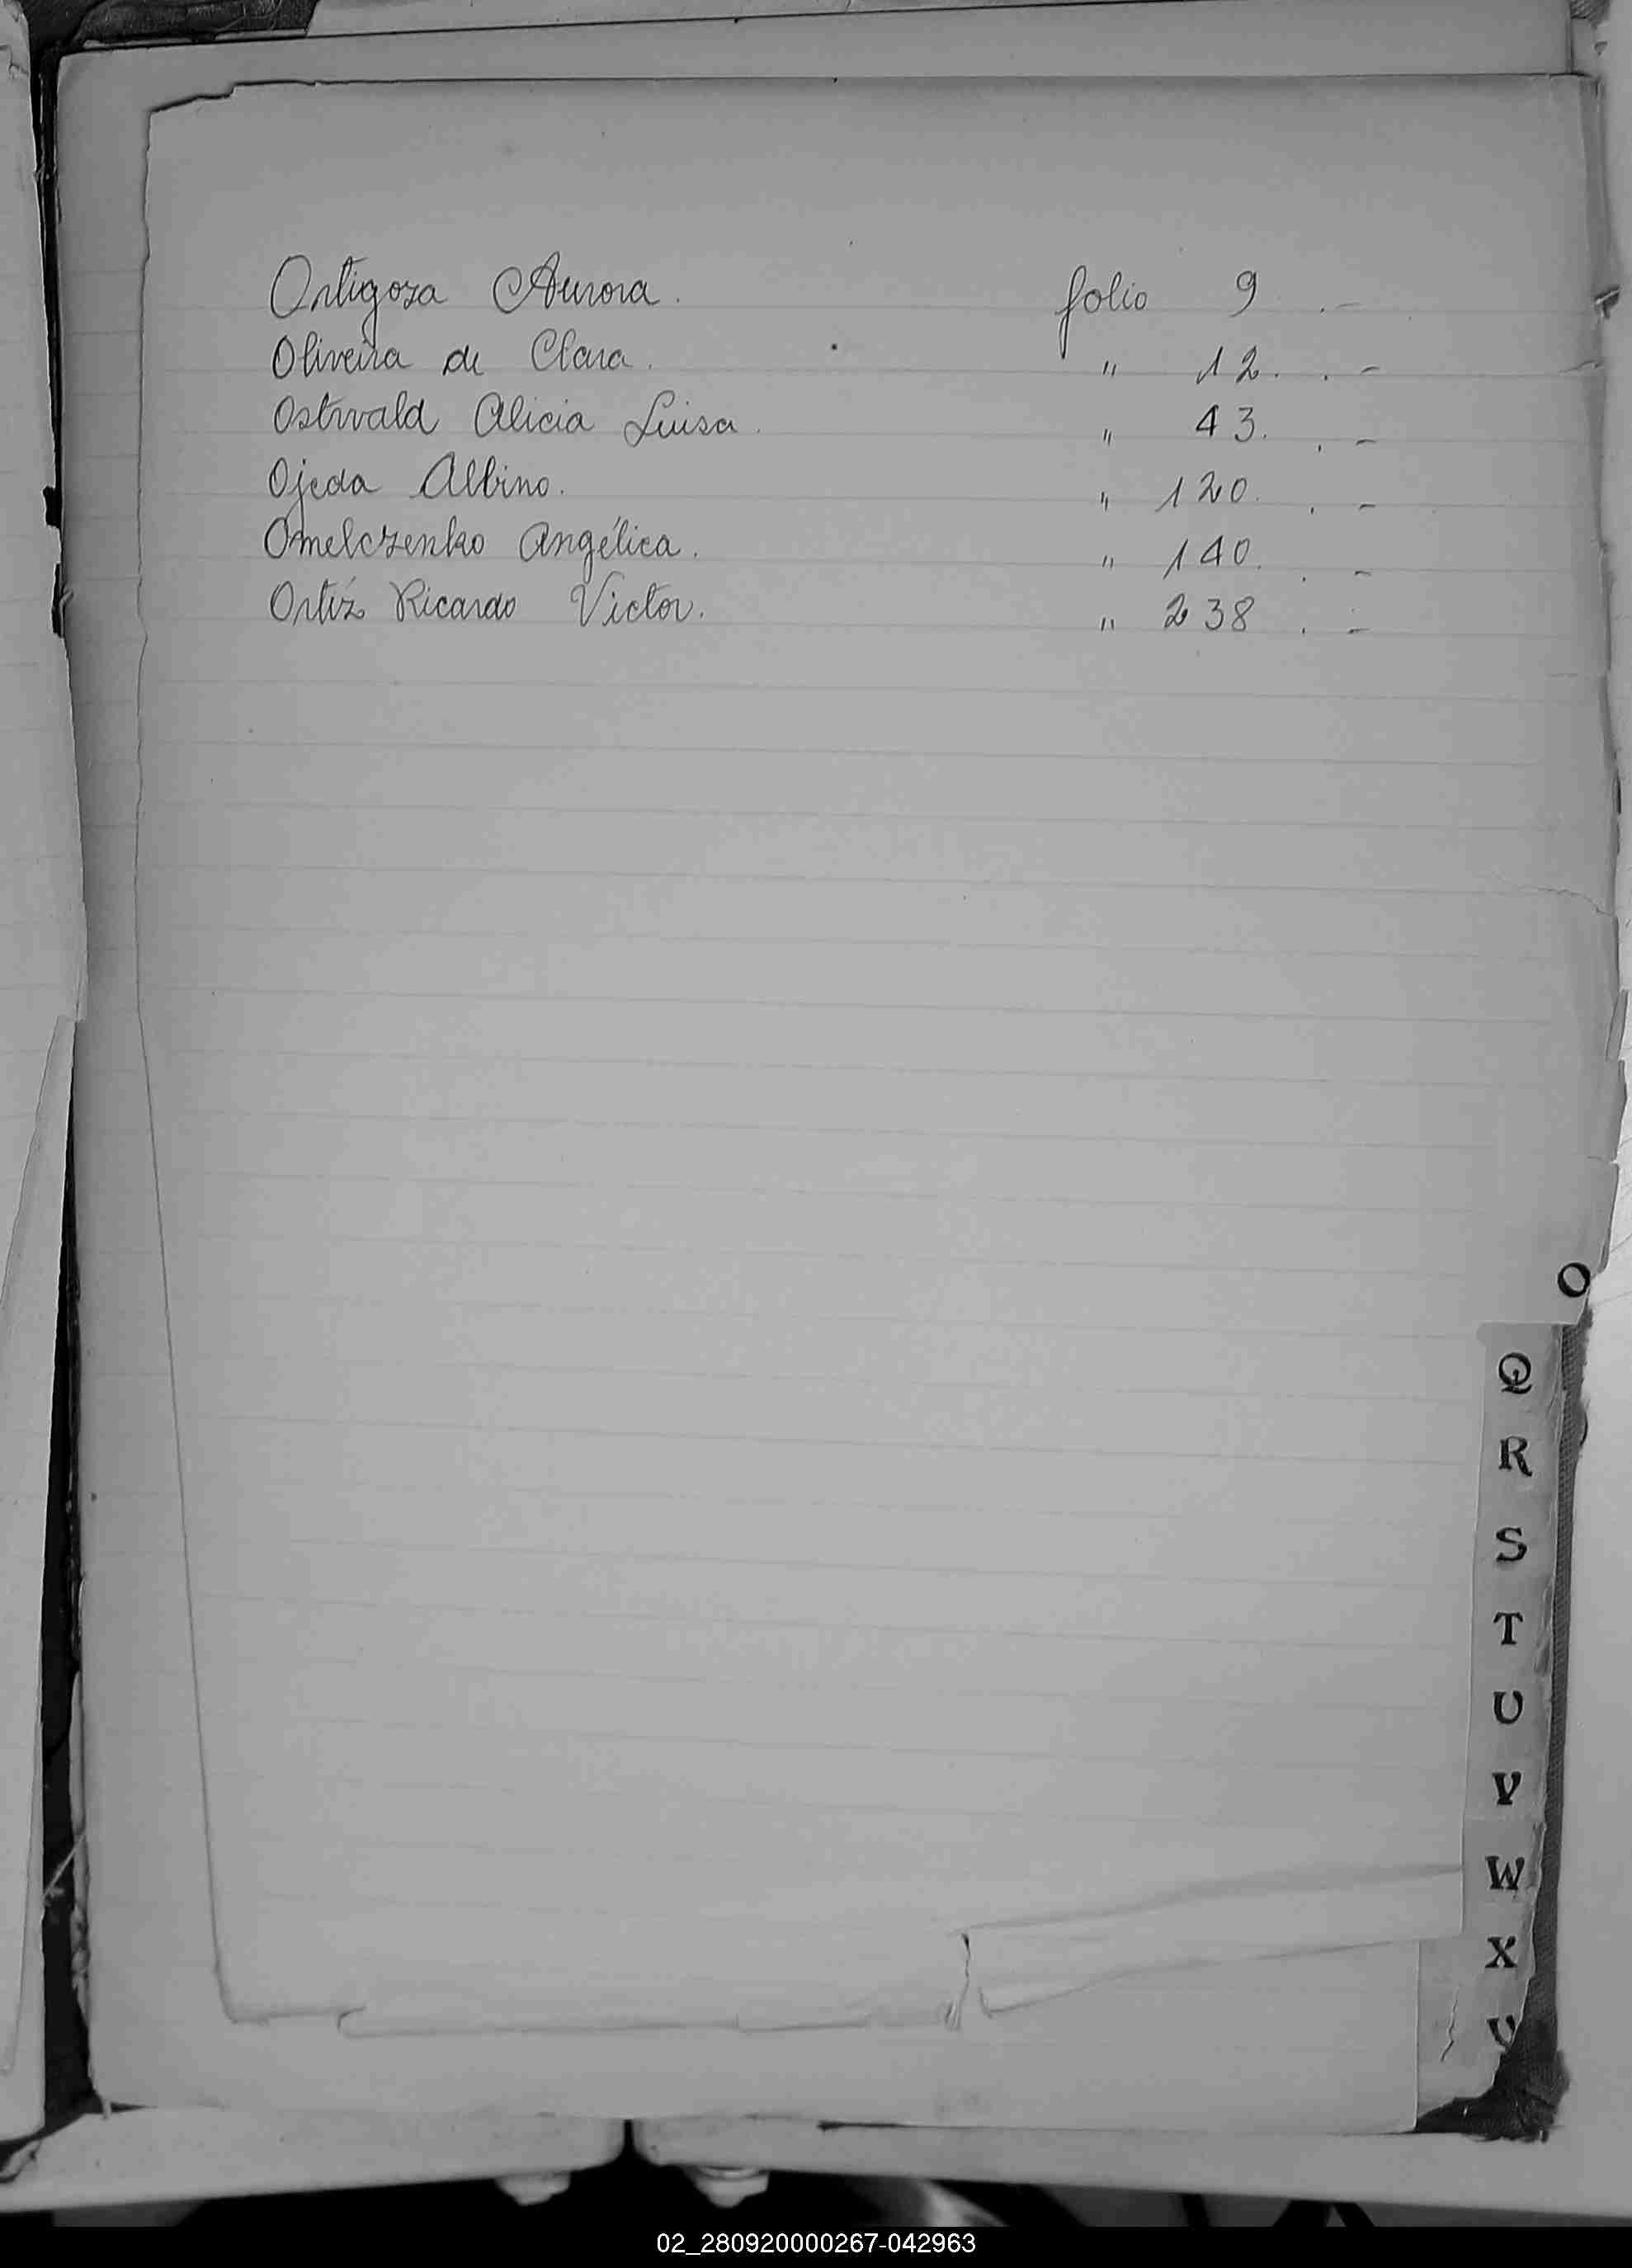 Ortigoza Aurora. folio 9 .-
Oliveira de Clara. " 12. .-
Ostwald Alicia Luisa. " 43. .-
Ojeda Albino. " 120. .-
Omelczenko Angélica. " 140. .-
Ortíz Ricardo Victor. " 238 .-
O
Q
R
S
T
U
V
W
X
02_280920000267-042963